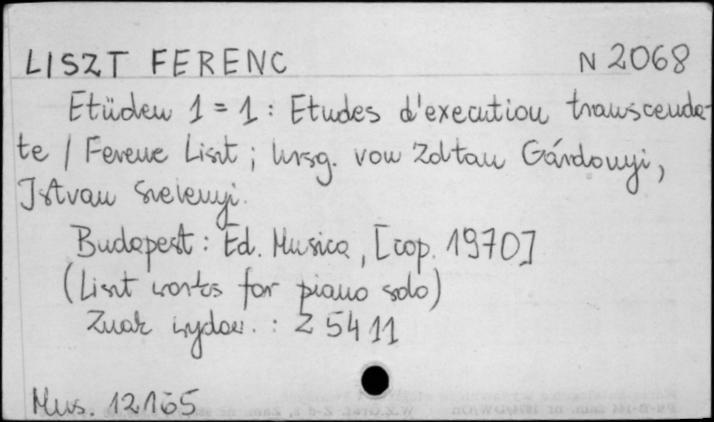 LISZT FERENC N 2068
Etüden 1 = 1 : Etudes d'execution transcenda-
te / Ferenc Liszt ; hrsg. von Zoltan Gárdonyi,
Istvan Szelenyi.
Budapest : Ed. Musica, [cop. 1970]
(Liszt works for piano solo)
Znak wydaw. : Z 5411
Mus. 12165